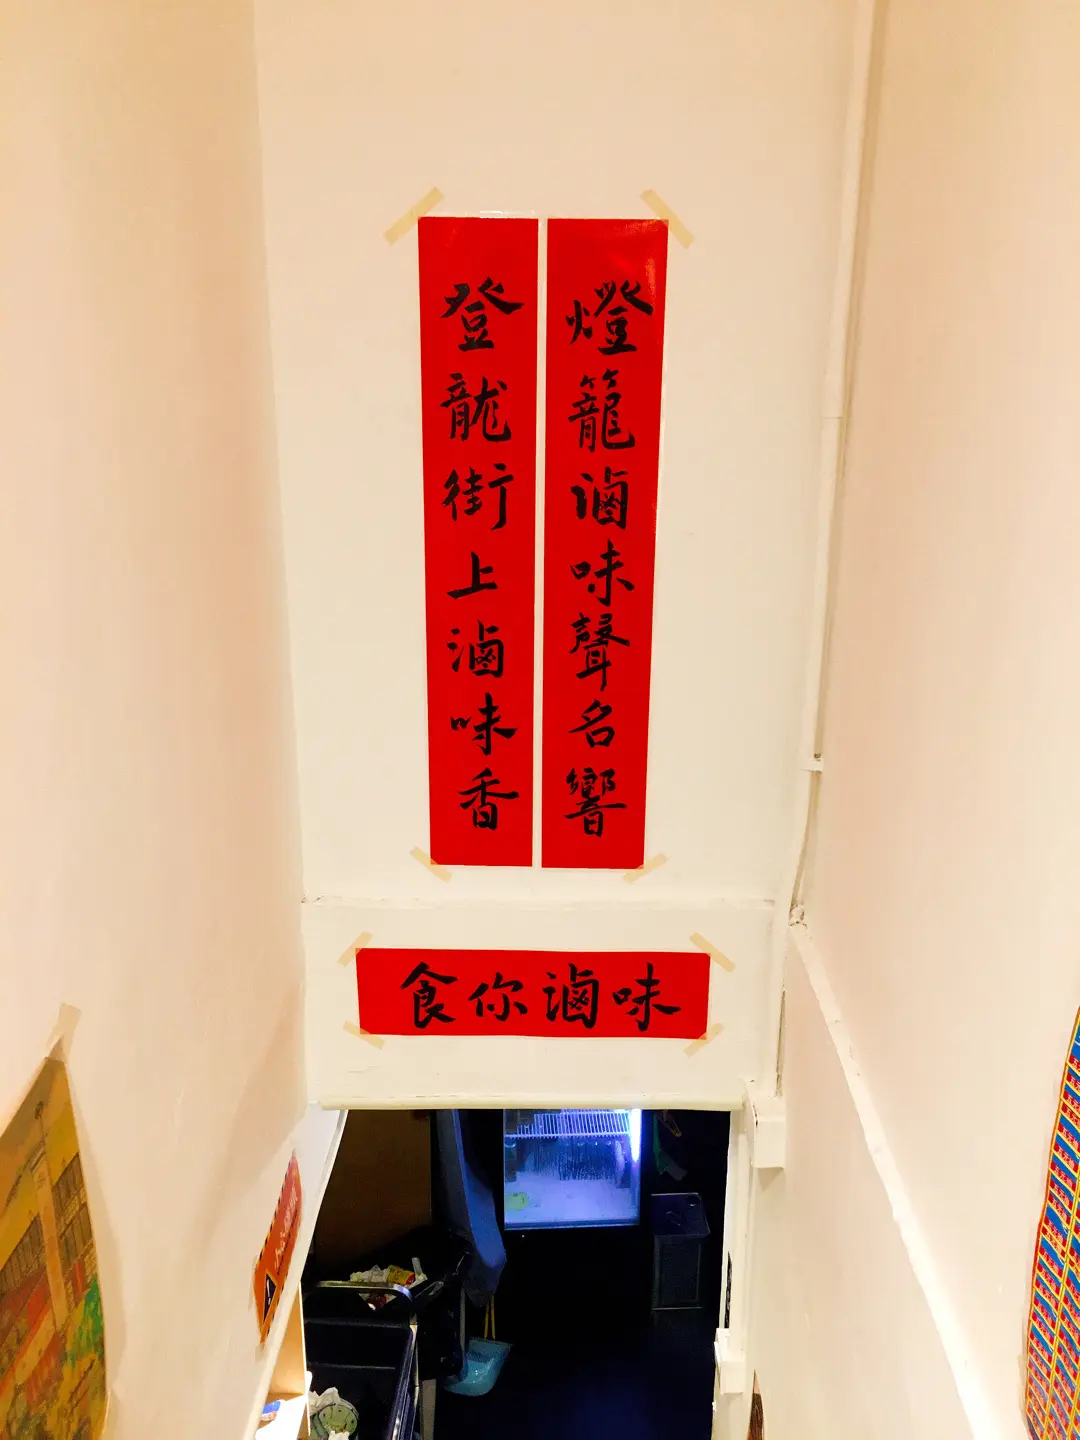 燈籠滷味聲名響
登龍街上滷味香
食你滷味